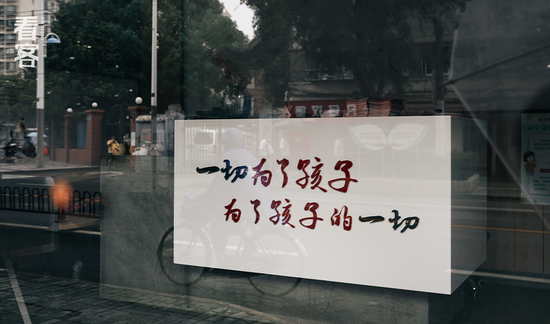 看客
一切为了孩子
为了孩子的一切